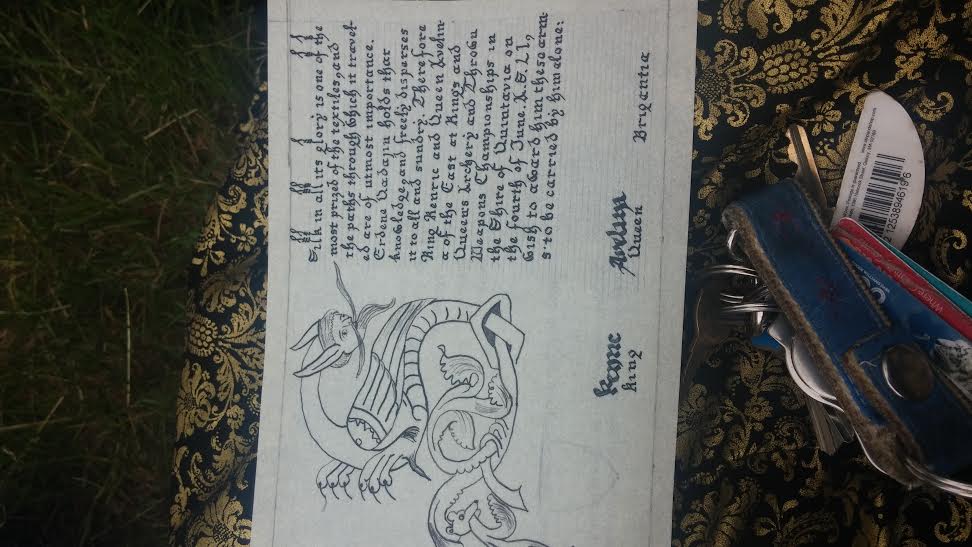 Silk in all its glory is one of the
most prized of the textiles, and
the paths through which it travel-
ed are of utmost importance.
Erdene Vadajin holds that
knowledge, and freely disperses
it to all and sundry. Therefore
King Kenric and Queen Avelin-
a of the East at Kings and
Queens Archery and Thrown
Weapons Championships in
the Shire of Quintavia on
the fourth of June A.S. LI,
wish to award him these arm-
s to be carried by him alone:
Kenric
King
Avelina
Queen
Brygantia